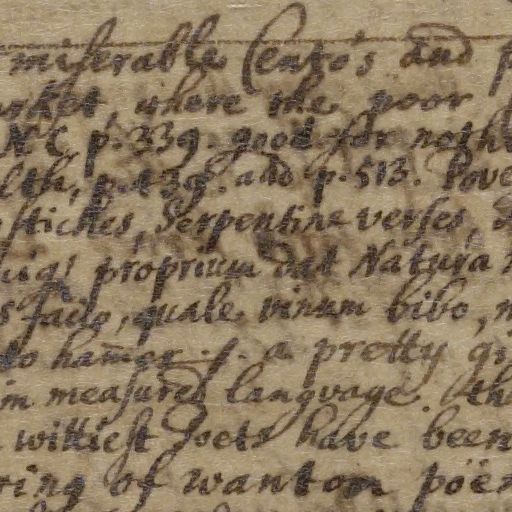 miserable Cento's and
market, where the poor
N C p. 339. good for noth
lth, p. 439. and p. 513. Pove
stiches, Serpentine verses,
proprium dat Natura
s facio, quale vinum bibo,
hamer. s. a pretty gi
in measured language. th
wittiest Poets have been
ring of wanton poëm